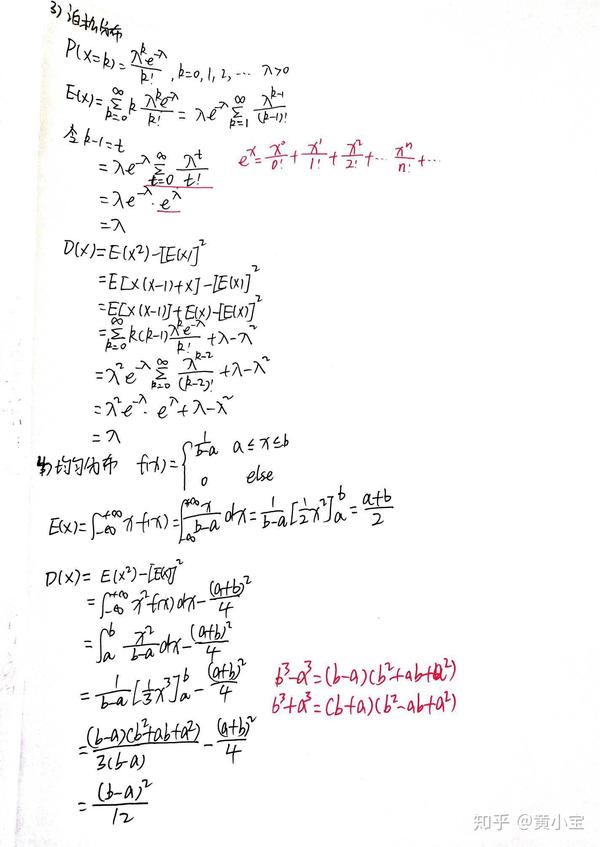 3) 泊松分布
P(X=k)=\frac{λ^k e^{-λ}}{k!}, k=0,1,2,… λ>0
E(X)=\sum_{k=0}^{∞} k \frac{λ^k e^{-λ}}{k!} = λe^{-λ} \sum_{k=1}^{∞} \frac{λ^{k-1}}{(k-1)!}
令 k-1=t
=λe^{-λ} \sum_{t=0}^{∞} \frac{λ^t}{t!} e^x=\frac{x^0}{0!}+\frac{x^1}{1!}+\frac{x^2}{2!}+…\frac{x^n}{n!}+…
=λe^{-λ}·e^λ
=λ
D(X)=E(X^2)-[E(X)]^2
=E[X(X-1)+X]-[E(X)]^2
=E[X(X-1)]+E(X)-[E(X)]^2
=\sum_{k=0}^{∞} k(k-1)\frac{λ^k e^{-λ}}{k!}+λ-λ^2
=λ^2 e^{-λ} \sum_{k=0}^{∞} \frac{λ^{k-2}}{(k-2)!}+λ-λ^2
=λ^2 e^{-λ}·e^λ+λ-λ^2
=λ
4) 均匀分布 f(x)=\begin{cases} \frac{1}{b-a} & a≤x≤b \\ 0 & else \end{cases}
E(X)=\int_{-∞}^{+∞} x·f(x)=\int_{-∞}^{+∞} \frac{x}{b-a}dx=\frac{1}{b-a}[\frac{1}{2}x^2]_a^b=\frac{a+b}{2}
D(X)=E(X^2)-[E(X)]^2
=\int_{-∞}^{+∞} x^2 f(x)dx-\frac{(a+b)^2}{4}
=\int_a^b \frac{x^2}{b-a}dx-\frac{(a+b)^2}{4}
=\frac{1}{b-a}[\frac{1}{3}x^3]_a^b-\frac{(a+b)^2}{4} b^3-a^3=(b-a)(b^2+ab+a^2)
b^3+a^3=(b+a)(b^2-ab+a^2)
=\frac{(b-a)(b^2+ab+a^2)}{3(b-a)}-\frac{(a+b)^2}{4}
=\frac{(b-a)^2}{12}
知乎 @黄小宝